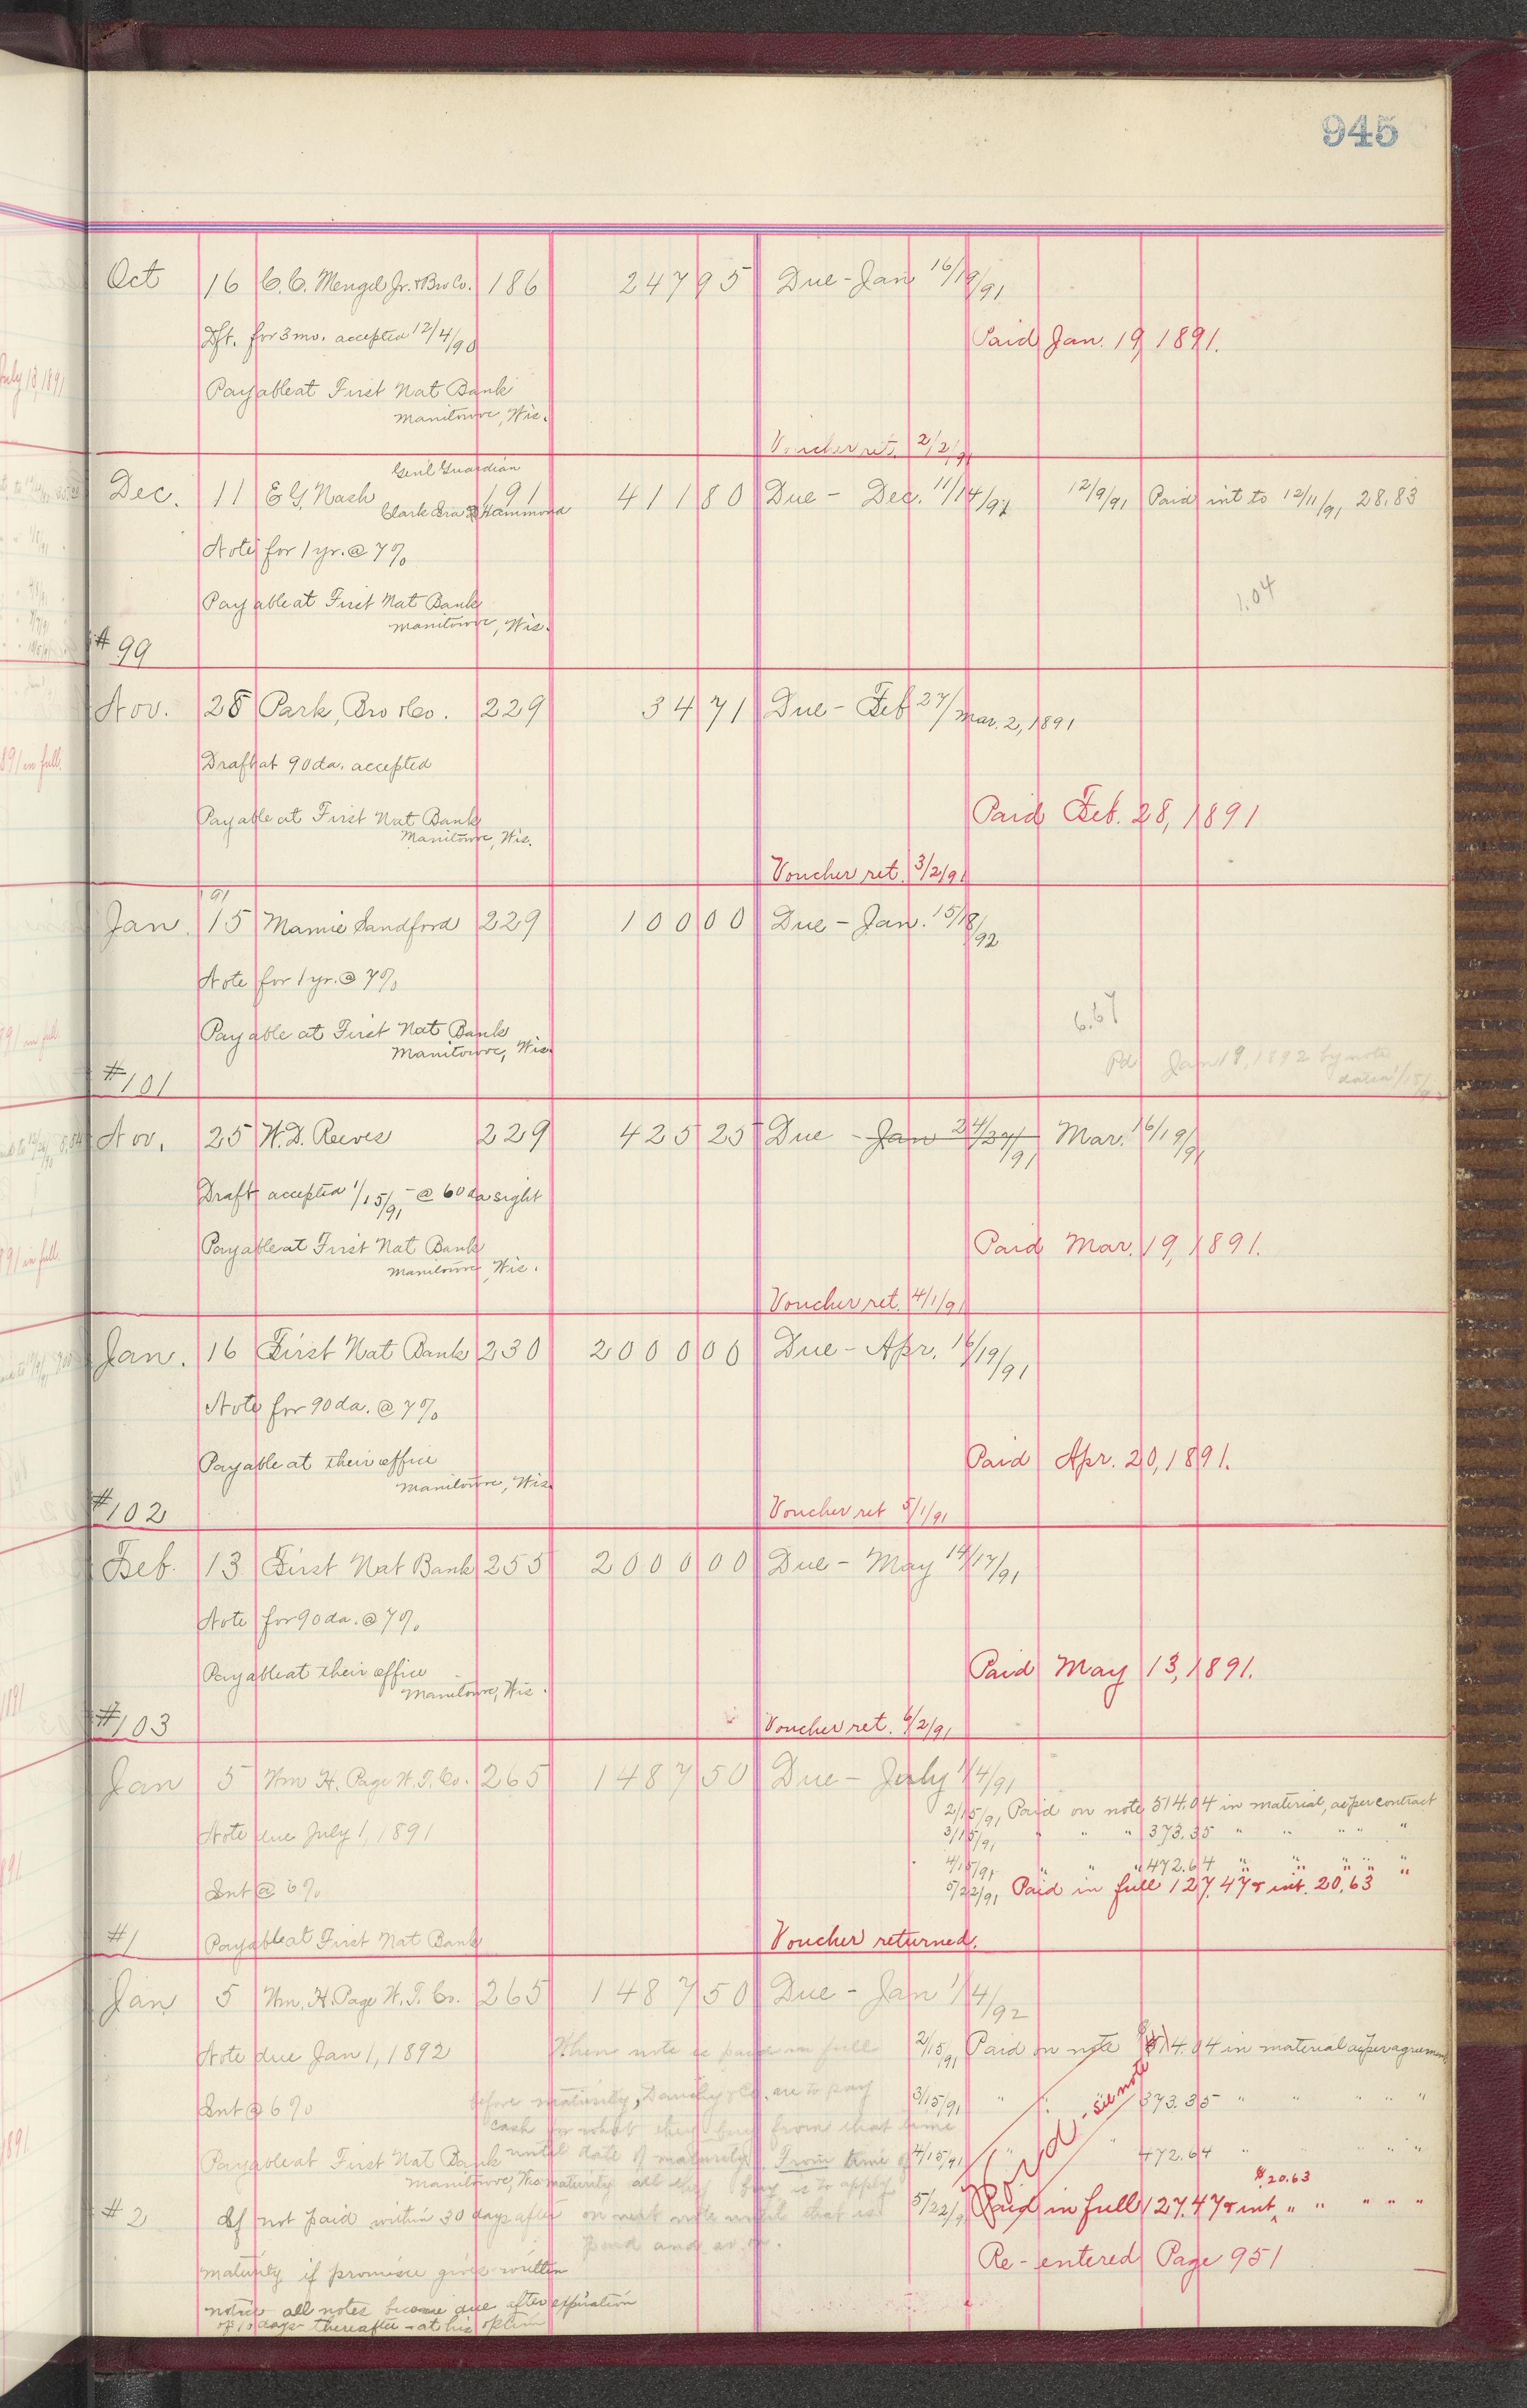 945
Oct 16 C. C. Mengel Jr. & Bro Co. 186 247 95 Due - Jan 16/19/91
Dft. for 3 mo. accepted 12/4/90
Paid Jan. 19, 1891.
Payable at First Nat Bank
Manitowoc, Wis.
Voucher ret. 2/2/91
Gen'l Guardian
Dec. 11 E G, Nash 191 411 80 Due - Dec. 11/14/91 12/9/91 Paid int to 12/11/91 28.83
Clark Hammond
Note for 1 yr. @ 7%
1.04
Payable at First Nat Bank
Manitowoc, Wis.
#99
Nov. 28 Park, Bro & Co. 229 34 71 Due - Feb 27/Mar. 2, 1891
Draft at 90 da. accepted
Payable at First Nat Bank
Paid Feb. 28, 1891
Manitowoc, Wis.
Voucher ret. 3/2/91
91
Jan. 15 Mamie Sandford 229 100 00 Due - Jan. 15/18/92
Note for 1 yr. @ 7%
6.67
Payable at First Nat Bank
Manitowoc, Wis.
Pd Jan 19, 1892 by note
dated 1/15/92
#101
Nov. 25 W. D. Reeves 229 425 25 Due - Jan 24/27/91 Mar. 16/19/91
Draft accepted 1/15/91 - @ 60 da sight
Payable at First Nat Bank
Paid Mar. 19, 1891.
Manitowoc, Wis.
Voucher ret. 4/1/91
Jan. 16 First Nat Bank 230 2000 00 Due - Apr. 16/19/91
Note for 90 da. @ 7%
Payable at their office
Paid Apr. 20, 1891.
Manitowoc, Wis.
#102
Voucher ret 5/1/91
Feb. 13 First Nat Bank 255 2000 00 Due - May 14/17/91
Note for 90 da. @ 7%
Payable at their office
Paid May 13, 1891.
Manitowoc, Wis.
#103
Voucher ret. 6/2/91
Jan 5 Wm H. Page W. T. Co. 265 1487 50 Due - July 1/4/91
2/15/91 Paid on note 514.04 in material, as per contract
Note due July 1, 1891
3/15/91 " " " 373.35 " " " " "
4/15/91 " " " 472.64 " " " " "
Int @ 6%
5/22/91 Paid in full 127.47 & int. 20.63 "
#1 Payable at First Nat Bank
Voucher returned.
Jan 5 Wm. H. Page W. T. Co. 265 1487 50 Due - Jan 1/4/92
Note due Jan 1, 1892
When note is paid in full
2/15/91 Paid on note $514.04 in material as per agreement
Int @ 6%
before maturity, are to pay
3/15/91 " " " 373.35 " " " " "
cash for what they buy from that time
Void - see note
Payable at First Nat Bank
until date of maturity. From time of
4/15/91 " " " 472.64 " " " " "
Manitowoc, Wis
maturity all they buy is to apply
$20.63
#2 If not paid within 30 days after
on next note until that is
5/22/91 Paid in full 127.47 & int. " " " " "
paid and so on.
Re-entered Page 951
maturity if promisee gives written
notice all notes become due after expiration
of 10 days thereafter - at his option